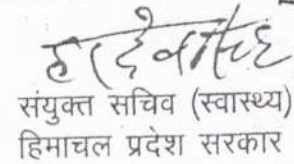 संयुक्त सचिव (स्वास्थ्य)
हिमाचल प्रदेश सरकार